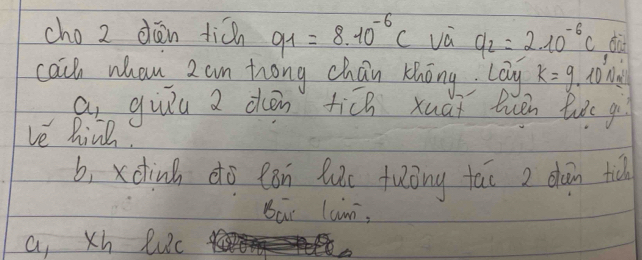 cho 2 điện tích q1 = 8.10⁻⁶ C và q2 = 2.10⁻⁶ C đặt
cách nhau 2cm trong chân không. Lấy k = 9.10⁹
a, giữa 2 điện tích xuất hiện lực gì
vẽ hình.
b, xđịnh độ lớn lực tương tác 2 điện tích
Bài làm,
a, xh lực